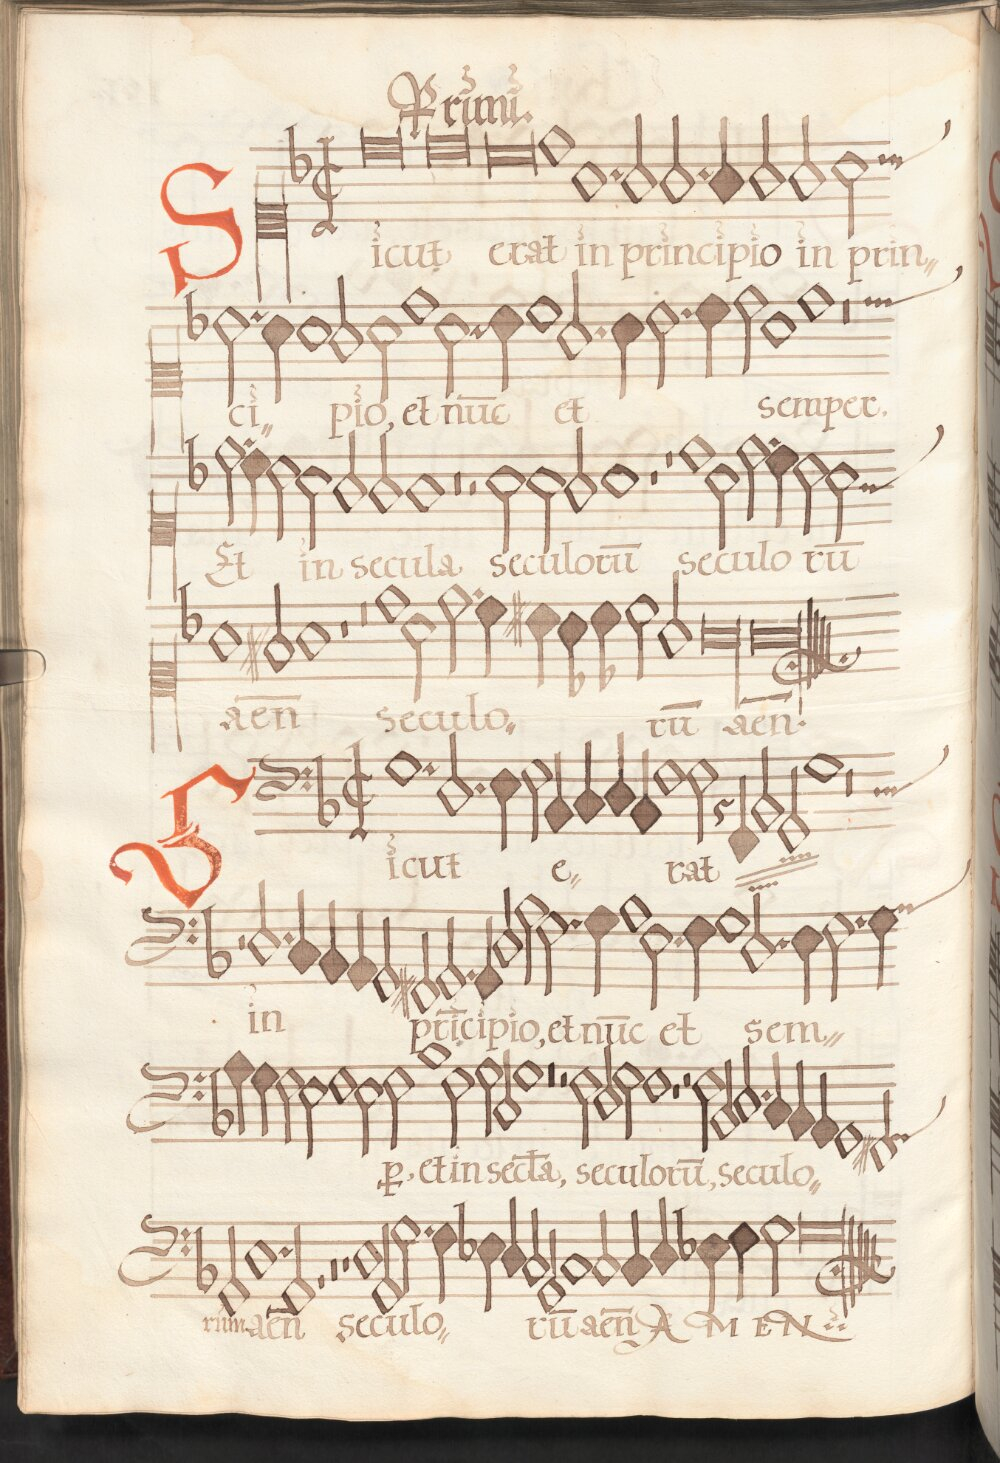 Primi.
Sicut erat in principio in prin„
ci„ pio, et nūc et semper.
Et in secula seculorū seculo rū
aen̄ seculo„ rū aen̄.
Sicut e„ rat
in pri̅cipio, et nūc et sem„
per. et in sec̄ta, seculorū, seculo„
rum aen̄ seculo„ rū aen̄ A M E N